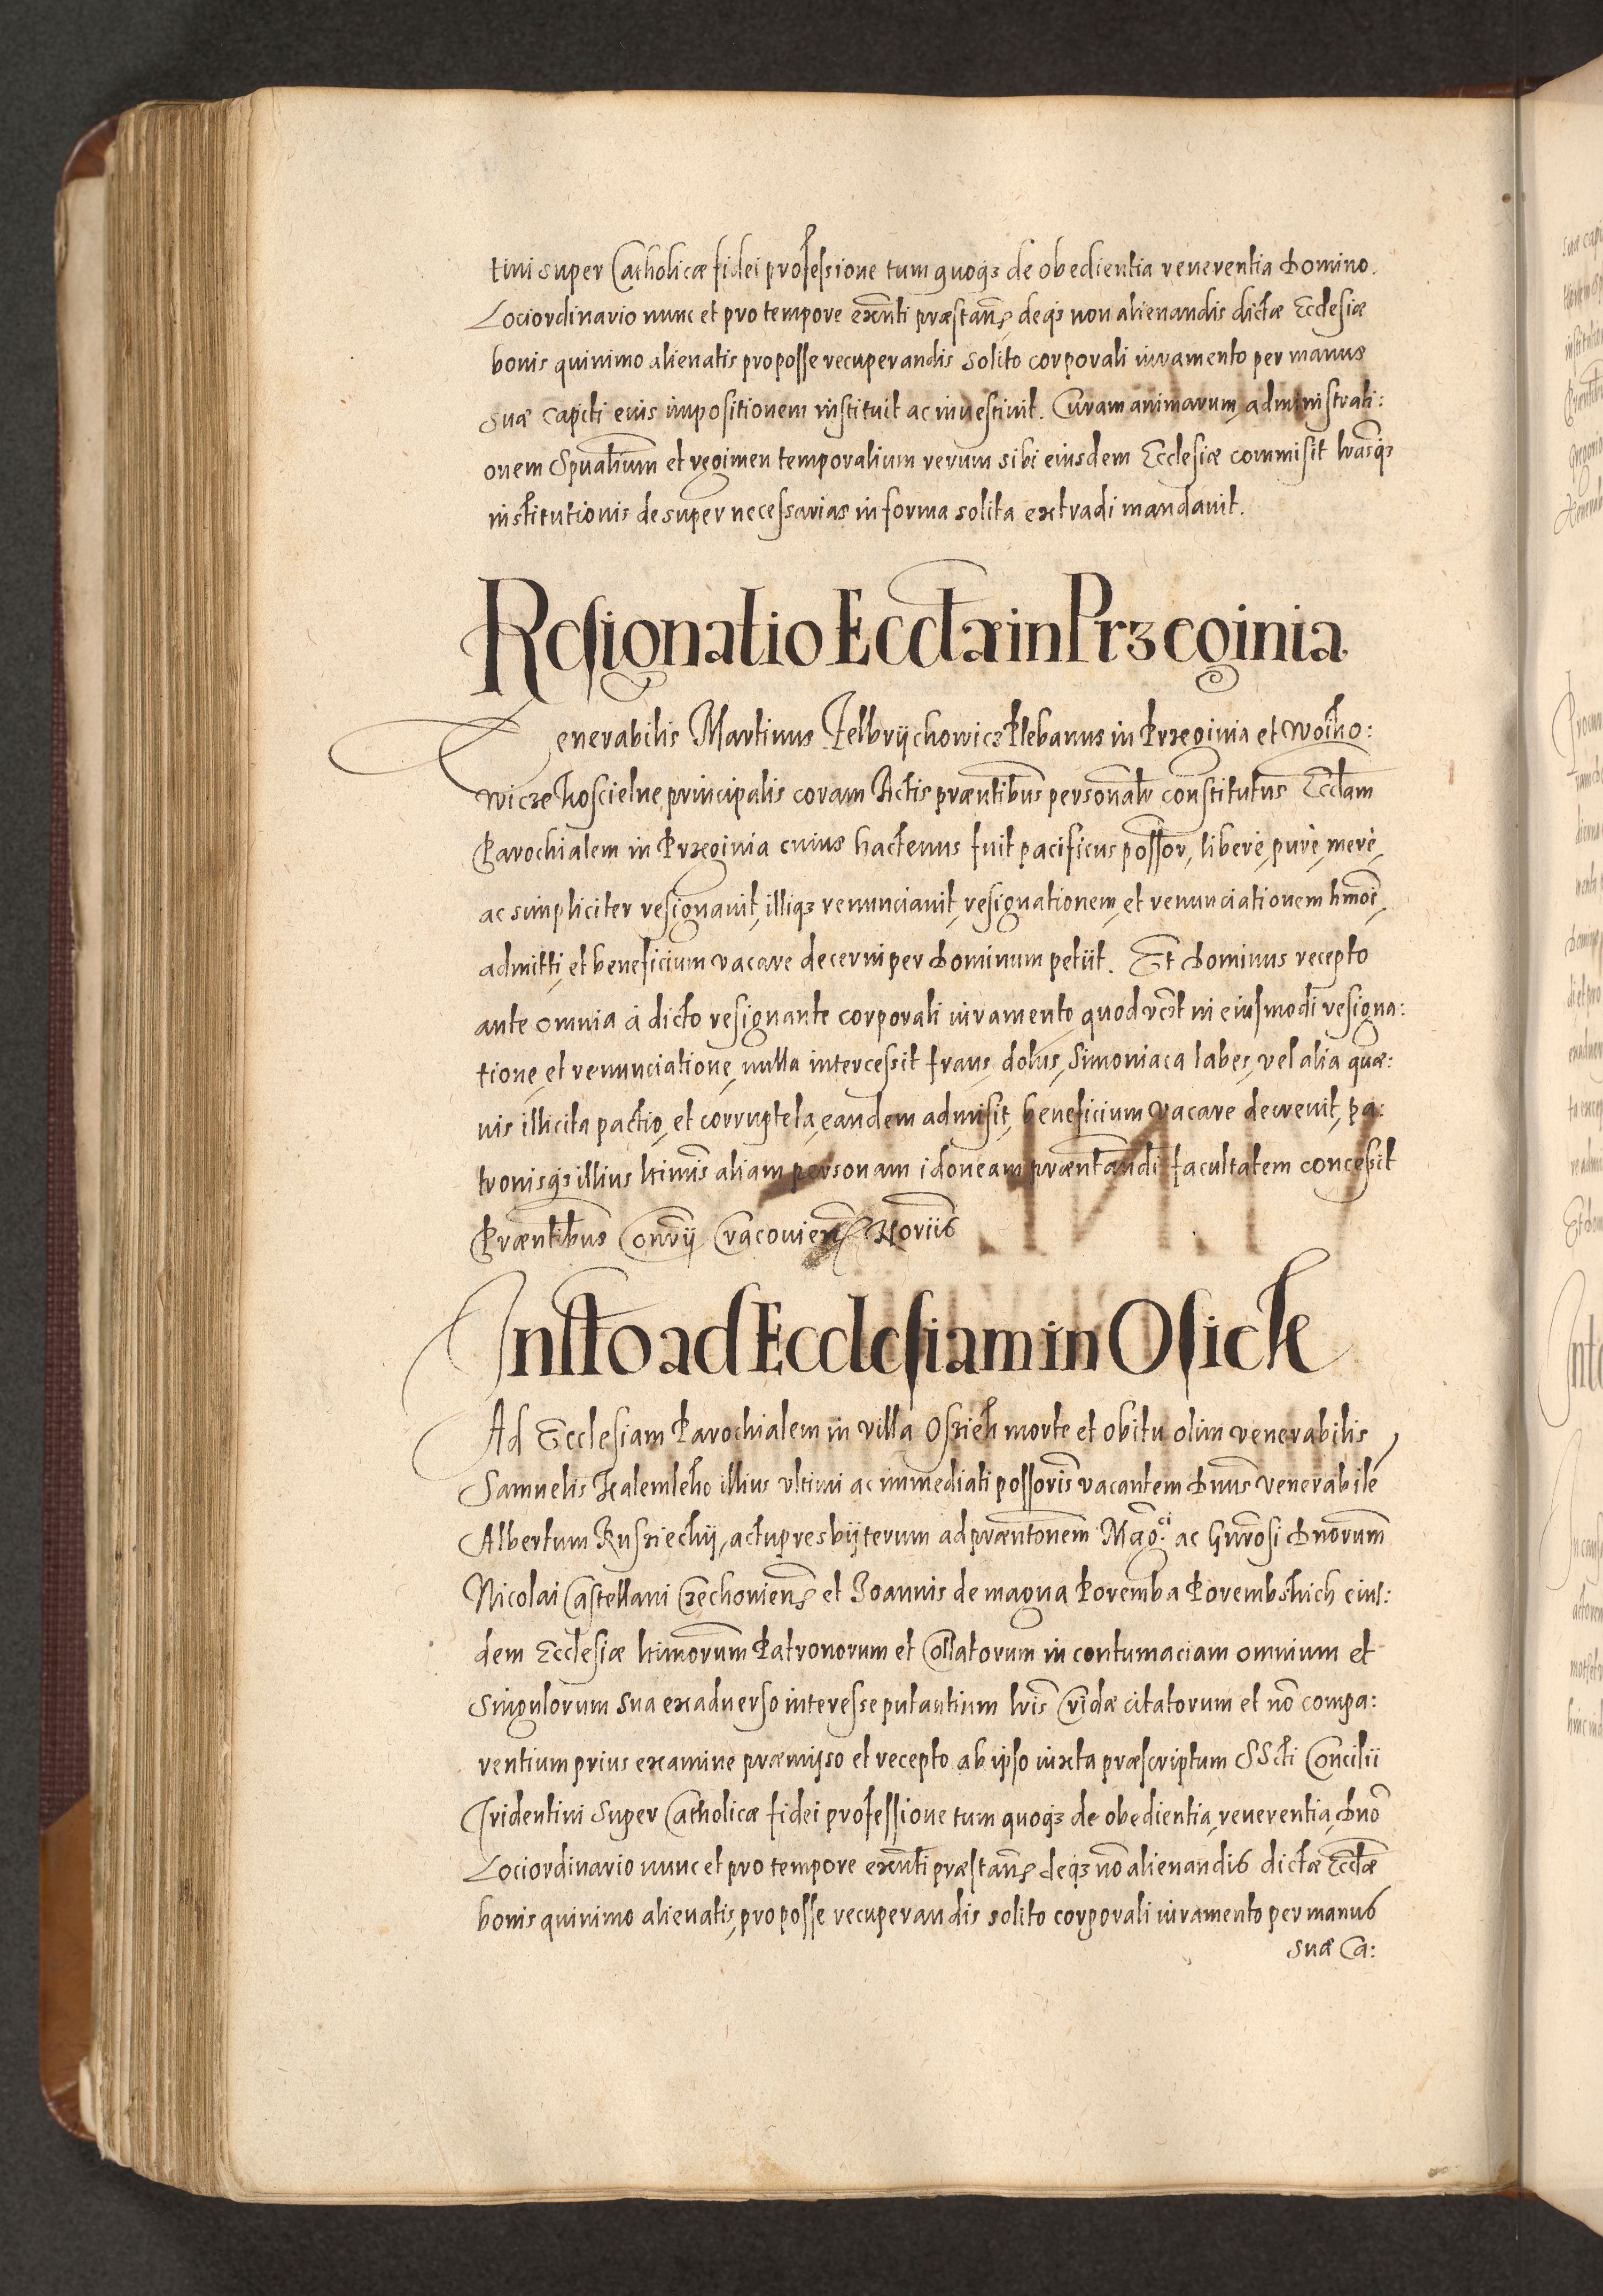 tini super Catholicæ fidei professione tum quoqz de obedientia reverentia Domino.
Loci ordinario nunc et pro tempore exñti præstanẽ, deqz non alienandis dictæ Ecclesiæ
bonis quinimo alienatis pro posse recuperandis solito corporali iuramento per manus
suæ capiti eius impositionem instituit ac investivit. Curam animarum, administrati:
onem Spualium et regimen temporalium rerum sibi eiusdem Ecclesiæ commisit lrasqz
institutionis desuper necessarias in forma solita extradi mandavit.
Resignatio Eccl̃æ in Przeginia
Venerabilis Martinus Plebanus in Przeginia et
wicze Koscielne principalis coram Actis præntibus personalr constitutus Eccl̃am
Parochialem in Przeginia cuius hactenus fuit pacificus possor, liberè, purè, merè,
ac simpliciter resignavit, illiqz renunciavit, resignationem, et renunciationem hm̃oi,
admitti, et beneficium vacare decerni per Dominum petiit. Et Dominus recepto
ante omnia à dicto resignante corporali iuramento, quod vc̃t in eiusmodi resigna:
tione, et renunciatione, nulla intercessit fraus, dolus, Simoniaca labes, vel alia quæ:
vis illicita pactio, et corruptela, eandem admisit, beneficium vacare decrevit, pa:
tronisqz illius ltimis aliam personam idoneam præntandi facultatem concessit
Præntibus Conrÿ Cracovien Noriis
Insto ad Ecclesiam in Osiek
Ad Ecclesiam Parochialem in villa Osziek morte et obitu olim venerabilis
Samuelis illius ultimi ac immediati possoris vacantem Dnus venerabilẽ
Albertum actu presbÿterum ad præntonem Mag:ci ac Gnrosi Dnorum
Nicolai Castellani et Joannis de magna Poremba Porembskich eius:
dem Ecclesiæ ltimorum Patronorum et Collatorum in contumaciam omnium et
Singulorum sua ex adverso interesse putantium lris Cridæ citatorum et nõ compa:
rentium prius examine præmisso et recepto ab ipso iuxta præscriptum SScti Concilii
Tridentini super Catholicæ fidei professione tum quoqz de obedientia, reverentia, Dno
Loci ordinario nunc et pro tempore exñti præstanẽ deqz nõ alienandis dictæ Eccl̃æ
bonis quinimo alienatis, pro posse recuperandis solito corporali iuramento per manus
suæ Ca: